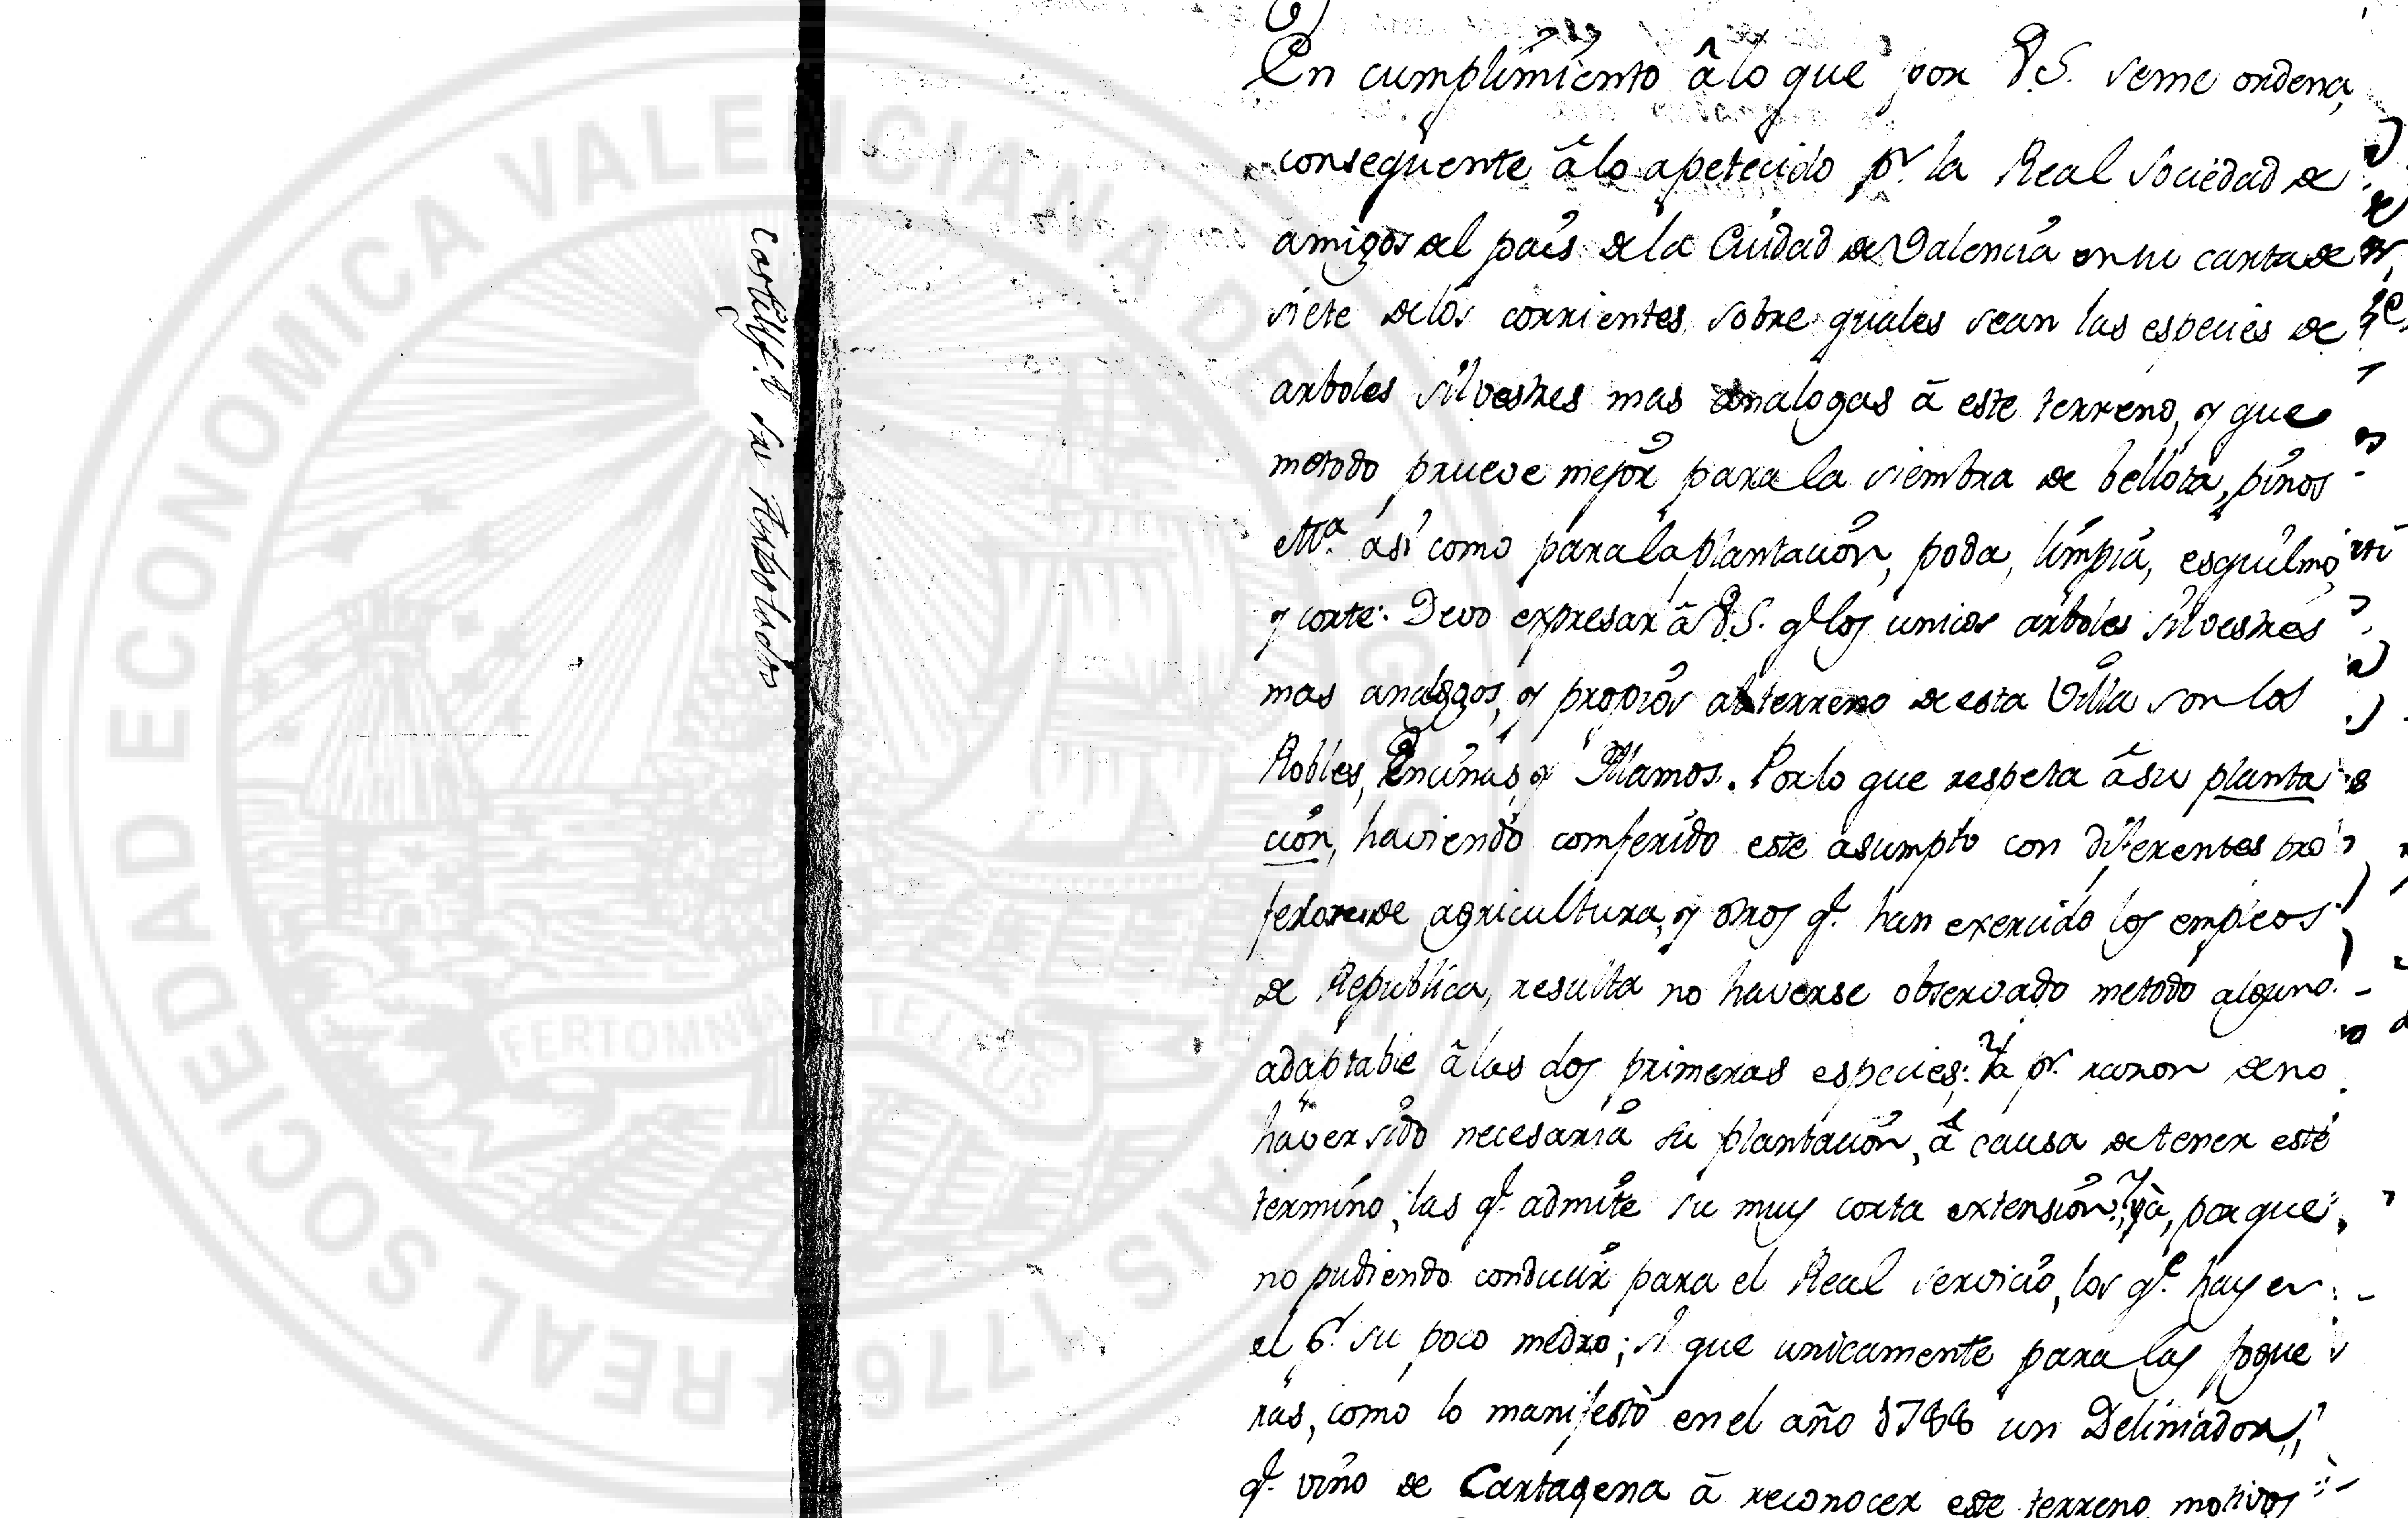 En cumplimiento â lo que por V.S. se me ordena,
conseqüente â lo apetecido pr. la Real Sociedad de
amigos del país de la Ciudad de Valencia en su carta de
siete de los corrientes sobre quales sean las especies de
arboles silvestres mas analogas â este terreno, y que
metodo prueve mejor para la siembra de bellota, pinos
así como para la plantación, poda, limpia, esquilmo,
y corte: Devo expresar â V.S. qe. los unicos arboles silvestres
mas analogos, y propios al terreno de esta Villa son los
Robles, Encinas, y Alamos. Por lo que respeta â su planta
ción, haviendo comferido este asumpto con diferentes pro
fesores de agricultura, y otros qe. han exercido los empleos
de Republica, resulta no haverse observado metodo alguno
adaptable â las dos primeras especies: Ya pr. razon de no
haver sido necesaria su plantación, â causa de tener este
termino las qe. admite su muy corta extensión: ya, porque
no pudiendo conducir para el Real servicio, los qe. hay en
el pr. su poco medro; si que unicamente para las fogue
ras, como lo manifestò en el año un Deliniador,
qe. vino de Cartagena â reconocer este terreno, motivos
Arbolados
REAL SOCIEDAD ECONOMICA VALENCIANA DE AMIGOS DEL PAIS 1776